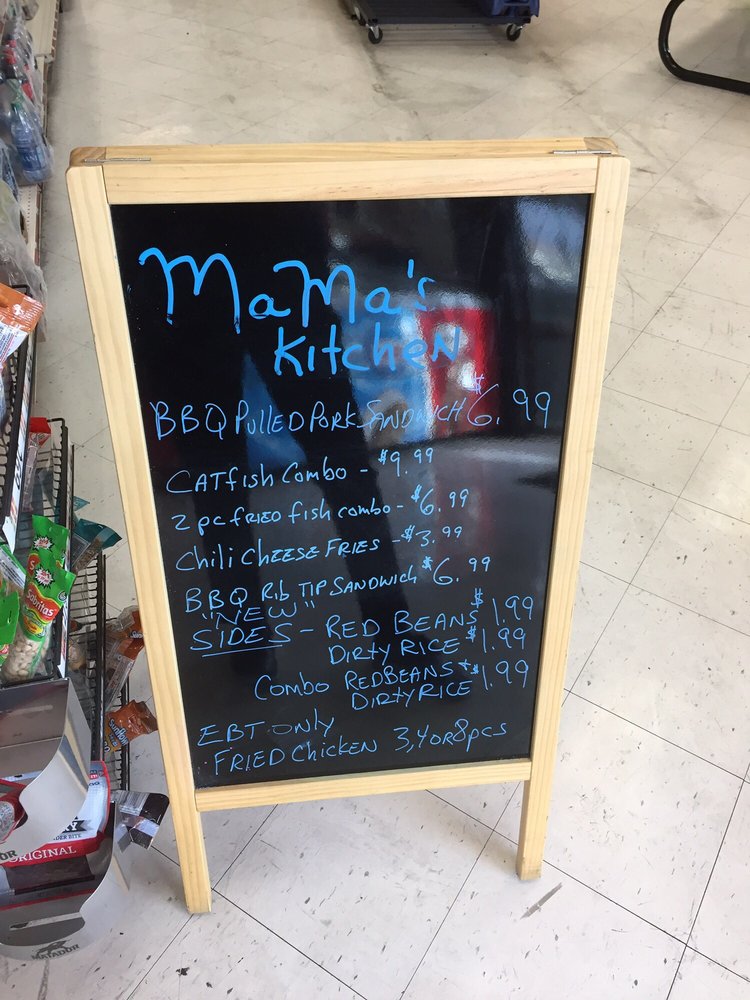 MaMa's
Kitchen
BBQ Pulled Pork Sandwich $6.99
Catfish Combo - $9.99
2 pc fried fish combo - $6.99
Chili Cheese Fries - $3.99
BBQ Rib Tip Sandwich $6.99
"NEW"
SIDES - RED BEANS $1.99
Dirty Rice $1.99
Combo RedBeans + $1.99
Dirty Rice
EBT only
Fried Chicken 3,4 or 8 pcs
Sabritas
ORIGINAL
MATADOR